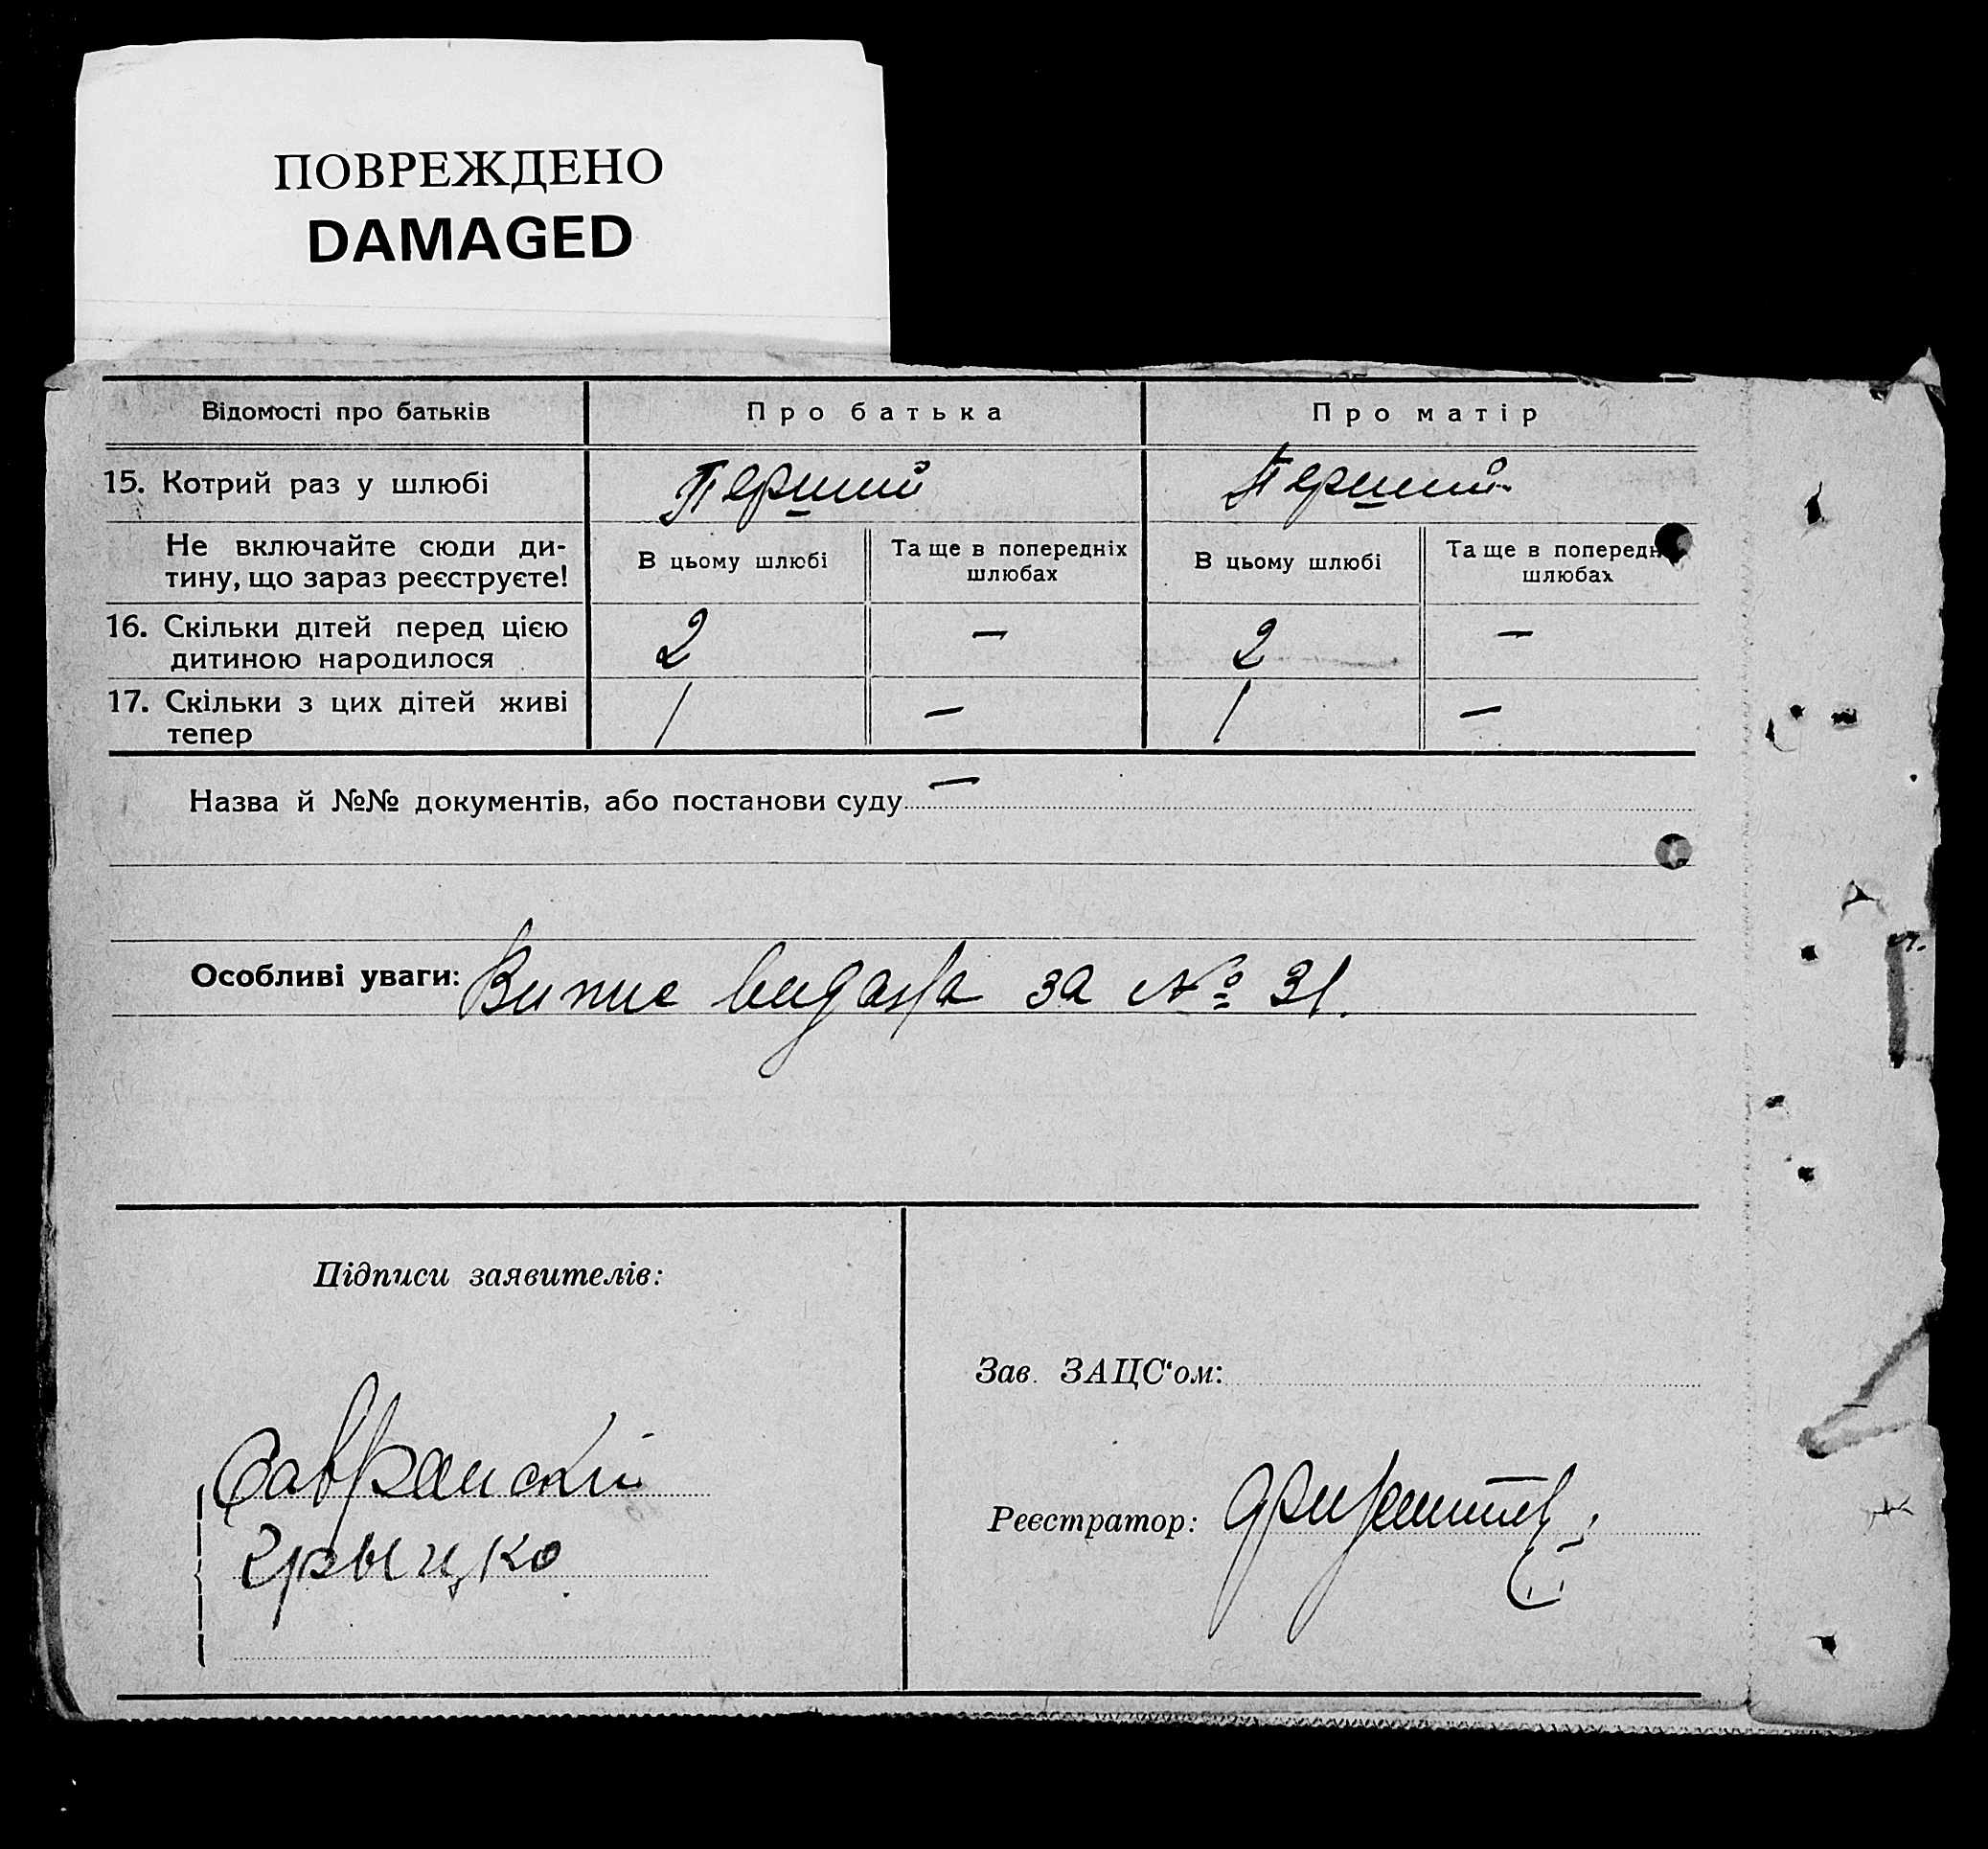 ПОВРЕЖДЕНО
DAMAGED
Відомості про батьків Про батька Про матір
15. Котрий раз у шлюбі Перший Перший
Не включайте сюди ди-
тину, що зараз реєструєте!
В цьому шлюбі
Та ще в попередніх
шлюбах
В цьому шлюбі
Та ще в попередн
шлюбах
16. Скільки дітей перед цією
дитиною народилося
2 — 2 —
17. Скільки з цих дітей живі
тепер
1 — 1 —
Назва й №№ документів, або постанови суду —
Особливі уваги: Випис видана за № 31.
Підписи заявителів:
Савранскій
Грыцко
Зав. ЗАЦС‘ом:
Реєстратор: